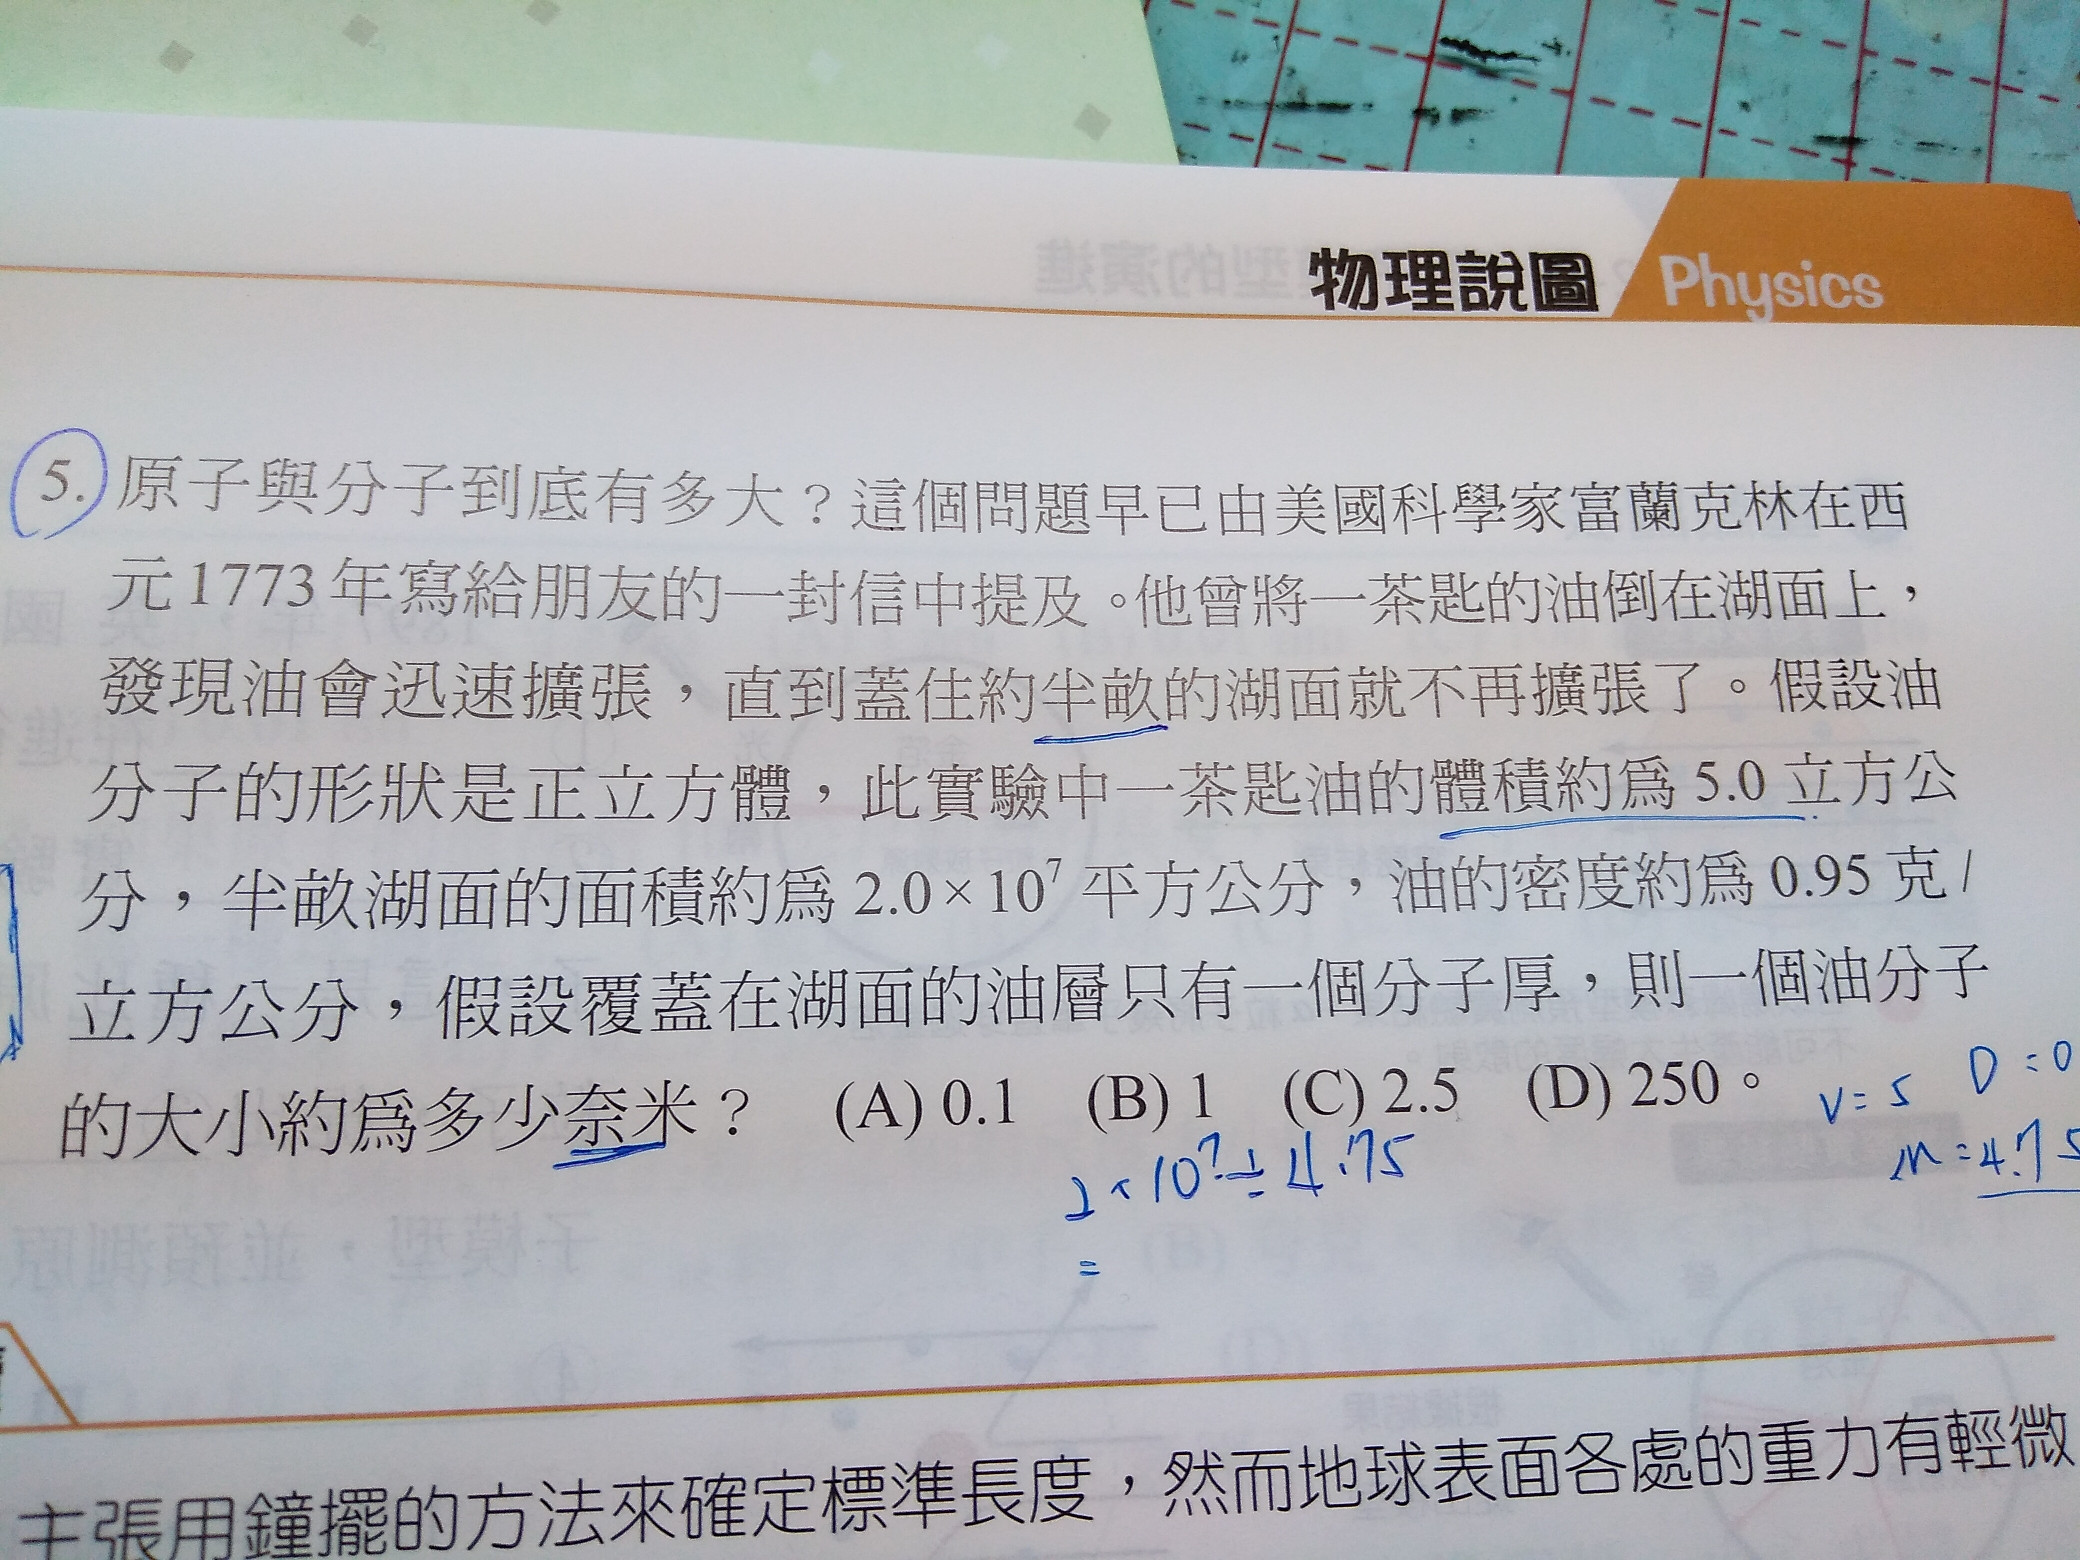 物理說圖 Physics
5. 原子與分子到底有多大？這個問題早已由美國科學家富蘭克林在西
元1773年寫給朋友的一封信中提及。他曾將一茶匙的油倒在湖面上，
發現油會迅速擴張，直到蓋住約半畝的湖面就不再擴張了。假設油
分子的形狀是正立方體，此實驗中一茶匙油的體積約為 5.0 立方公
分，半畝湖面的面積約為 2.0×10⁷ 平方公分，油的密度約為 0.95 克/
立方公分，假設覆蓋在湖面的油層只有一個分子厚，則一個油分子
的大小約為多少奈米？ (A) 0.1 (B) 1 (C) 2.5 (D) 250。
V=5 D=0
m=4.75
2×10⁷÷4.75
=
主張用鐘擺的方法來確定標準長度，然而地球表面各處的重力有輕微